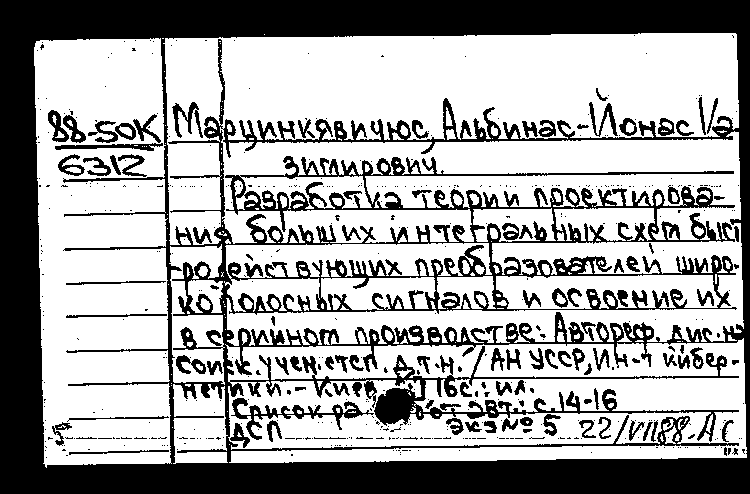 88-50К
6312
Марцинкявичюс, Альбинас-Йонас Ка-
зимирович.
Разработка теории проектирова-
ния больших интегральных схем быст
родействующих преобразователей широ-
кополосных сигналов и освоение их
в серийном производстве: Автореф. дис. на
соиск. учен. степ. д.т.н. / АН УССР, Ин-т кибер-
нетики. - Киев 16с.: ил.
Список работ авт.: с. 14-16
ДСП экз № 5 22/VII88. АС